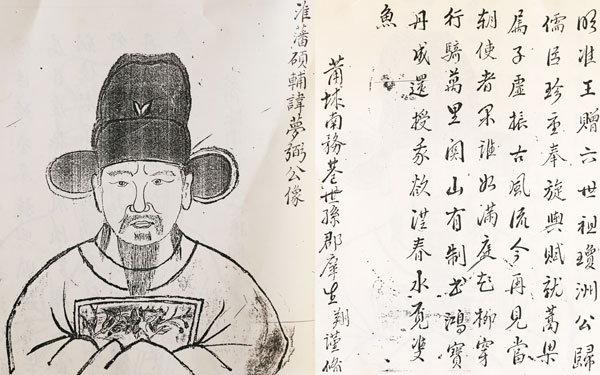 淮藩碩輔諱夢弼公像
明淮王贈六世祖瓊洲公歸
儒臣珍重奉旋輿賦就
屬子虛振古風流今再見當
朝使者果誰如滿庭花柳穿
行騎萬里關山有制書鴻寶
丹成還授欲春水覓雙
魚
莆埭南務巷世孫郡庠生翔謹修